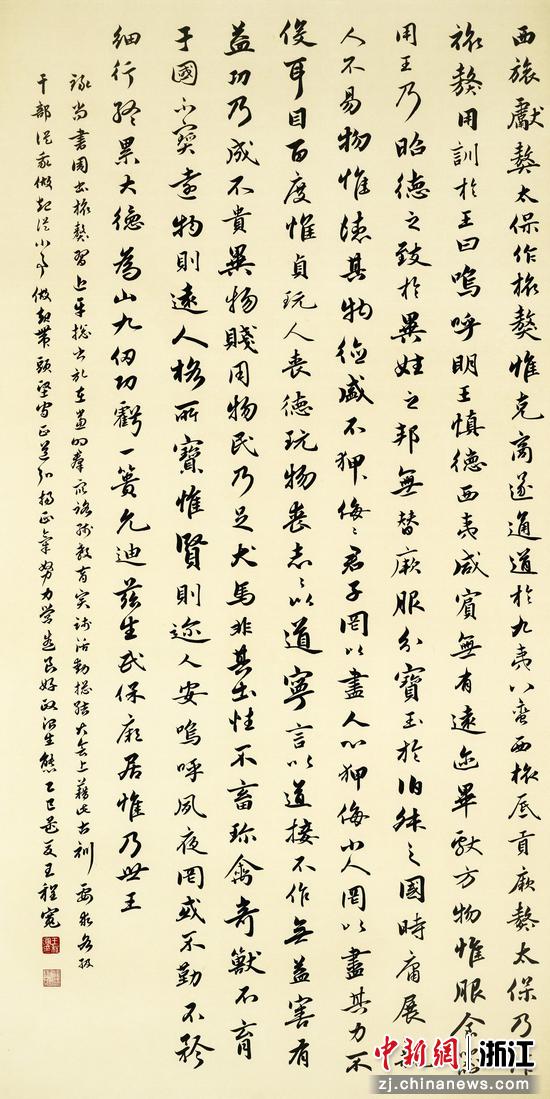 西旅獻獒太保作旅獒惟克商遂通道於九夷八蠻西旅厎貢厥獒太保乃作
旅獒用訓於王曰嗚呼明王慎德西夷咸賓無有遠邇畢獻方物惟服食器
用王乃昭德之致於異姓之邦無替厥服分寶玉於伯叔之國時庸展親
人不易物惟德其物德盛不狎侮〻君子罔以盡人心狎侮小人罔以盡其力不
役耳目百度惟貞玩人喪德玩物喪志〻以道寧言以道接不作無益害有
益功乃成不貴異物賤用物民乃足犬馬非其土性不畜珍禽奇獸不育
于國不寶遠物則遠人格所寶惟賢則邇人安嗚呼夙夜罔或不勤不矜
細行終累大德為山九仞功虧一簣允迪茲生民保厥居惟乃世王
錄尚書周書旅獒習近平總書記在黨的群眾路線教育實踐活動總結大會上藉此古訓要求各級
干部從我做起從小事做起帶頭堅守正道弘揚正氣努力營造良好政治生態乙巳夏王程寬
中新網 浙江
zj.chinanews.com